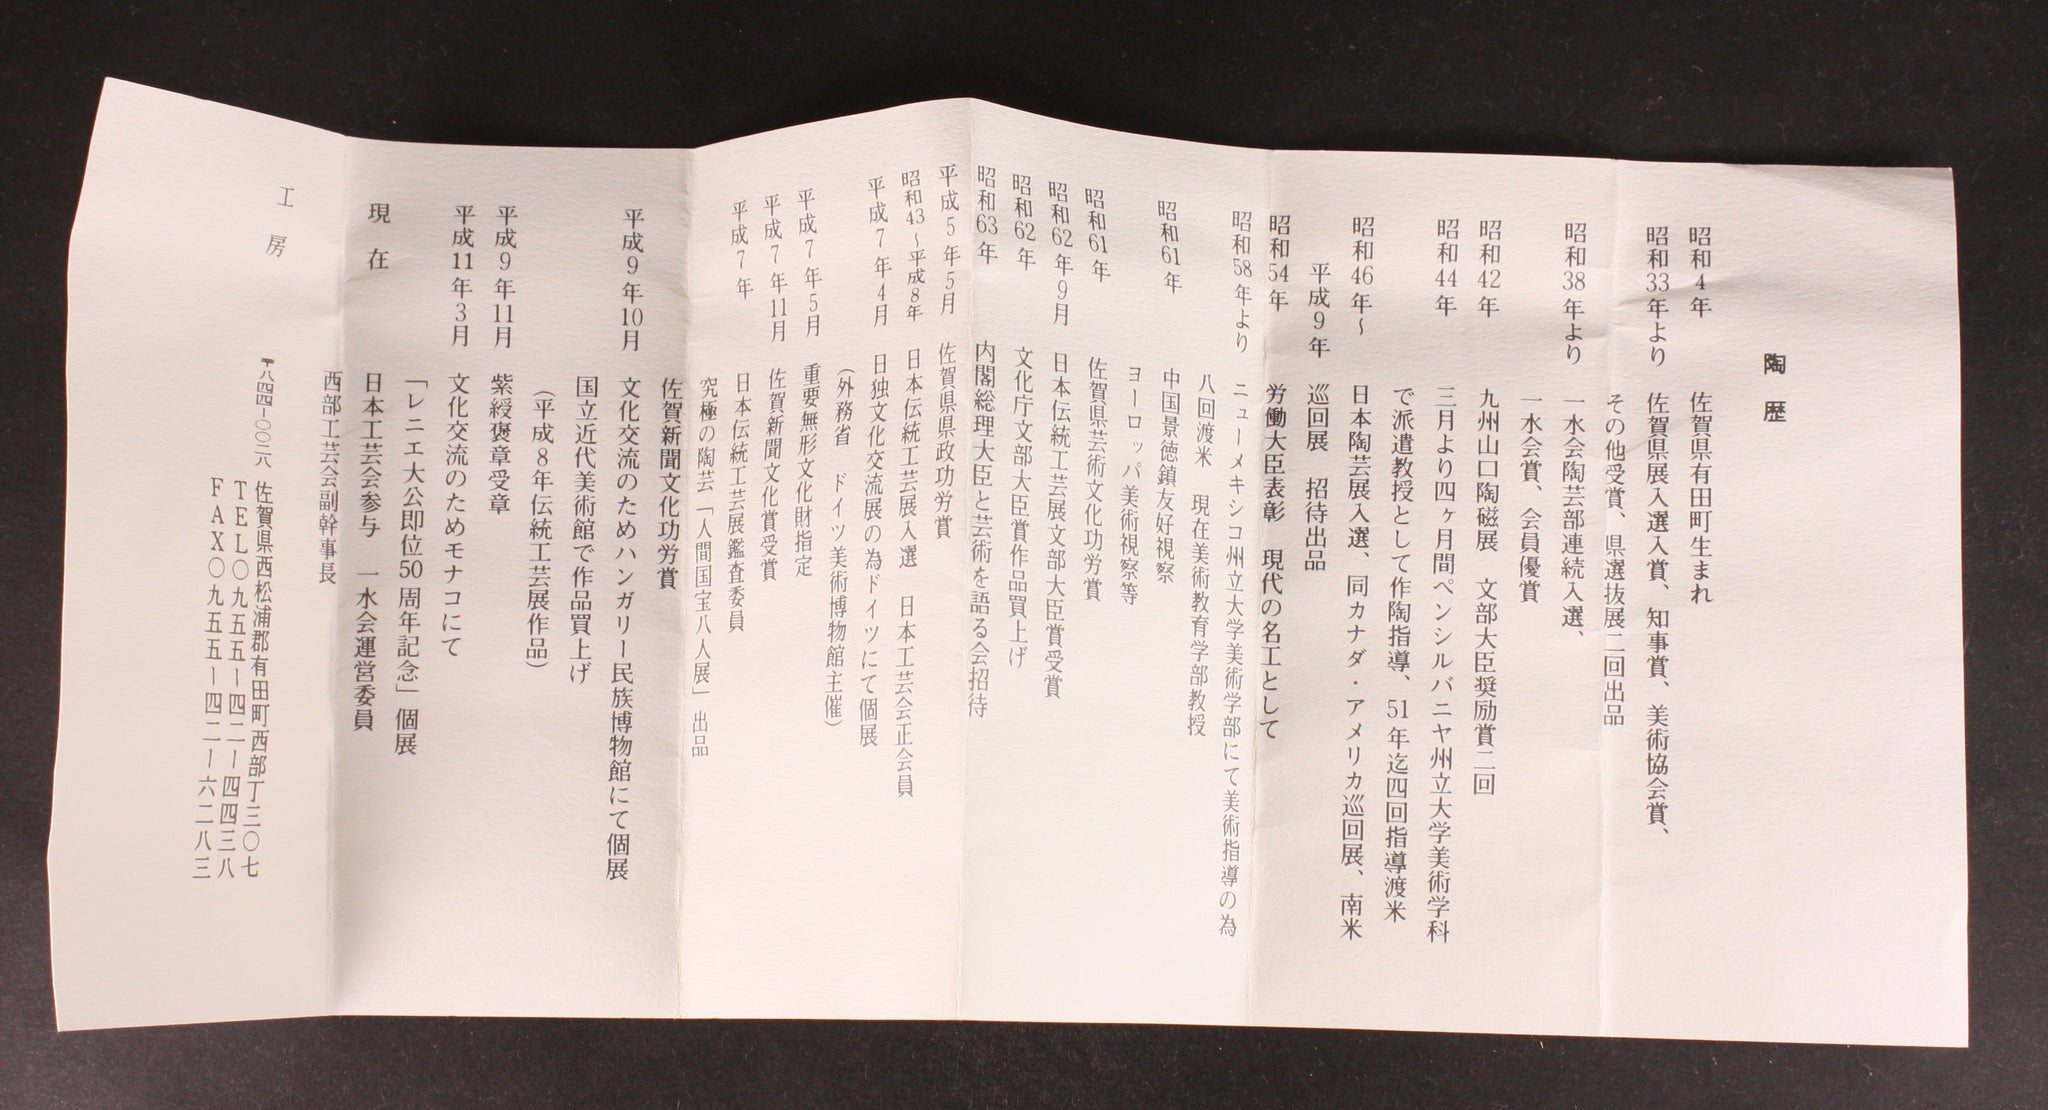 陶歴
昭和4年 佐賀県有田町生まれ
昭和33年より 佐賀県展入選入賞、知事賞、美術協会賞、
その他受賞、県選抜展二回出品
昭和38年より 一水会陶芸部連続入選、
一水会賞、会員優賞
昭和42年 九州山口陶磁展 文部大臣奨励賞二回
昭和44年 三月より四ヶ月間ペンシルバニヤ州立大学美術学科
で派遣教授として作陶指導、51年迄四回指導渡米
昭和46年〜 日本陶芸展入選、同カナダ・アメリカ巡回展、南米
平成9年 巡回展 招待出品
昭和54年 労働大臣表彰 現代の名工として
昭和58年より ニューメキシコ州立大学美術学部にて美術指導の為
八回渡米 現在美術教育学部教授
昭和61年 中国景徳鎮友好視察
ヨーロッパ美術視察等
昭和61年 佐賀県芸術文化功労賞
昭和62年9月 日本伝統工芸展文部大臣賞受賞
昭和62年 文化庁文部大臣賞作品買上げ
昭和63年 内閣総理大臣と芸術を語る会招待
平成5年5月 佐賀県県政功労賞
昭和43〜平成8年 日本伝統工芸展入選 日本工芸会正会員
平成7年4月 日独文化交流展の為ドイツにて個展
(外務省 ドイツ美術博物館主催)
平成7年5月 重要無形文化財指定
平成7年11月 佐賀新聞文化賞受賞
平成7年 日本伝統工芸展鑑査委員
究極の陶芸「人間国宝八人展」出品
佐賀新聞文化功労賞
平成9年10月 文化交流のためハンガリー民族博物館にて個展
国立近代美術館で作品買上げ
(平成8年伝統工芸展作品)
平成9年11月 紫綬褒章受章
平成11年3月 文化交流のためモナコにて
「レニエ大公即位50周年記念」個展
現在 日本工芸会参与 一水会運営委員
西部工芸会副幹事長
工房
〒八四四-〇〇二八 佐賀県西松浦郡有田町西部丁三〇七
TEL〇九五五-四二-四四三八
FAX〇九五五-四二-六二八三